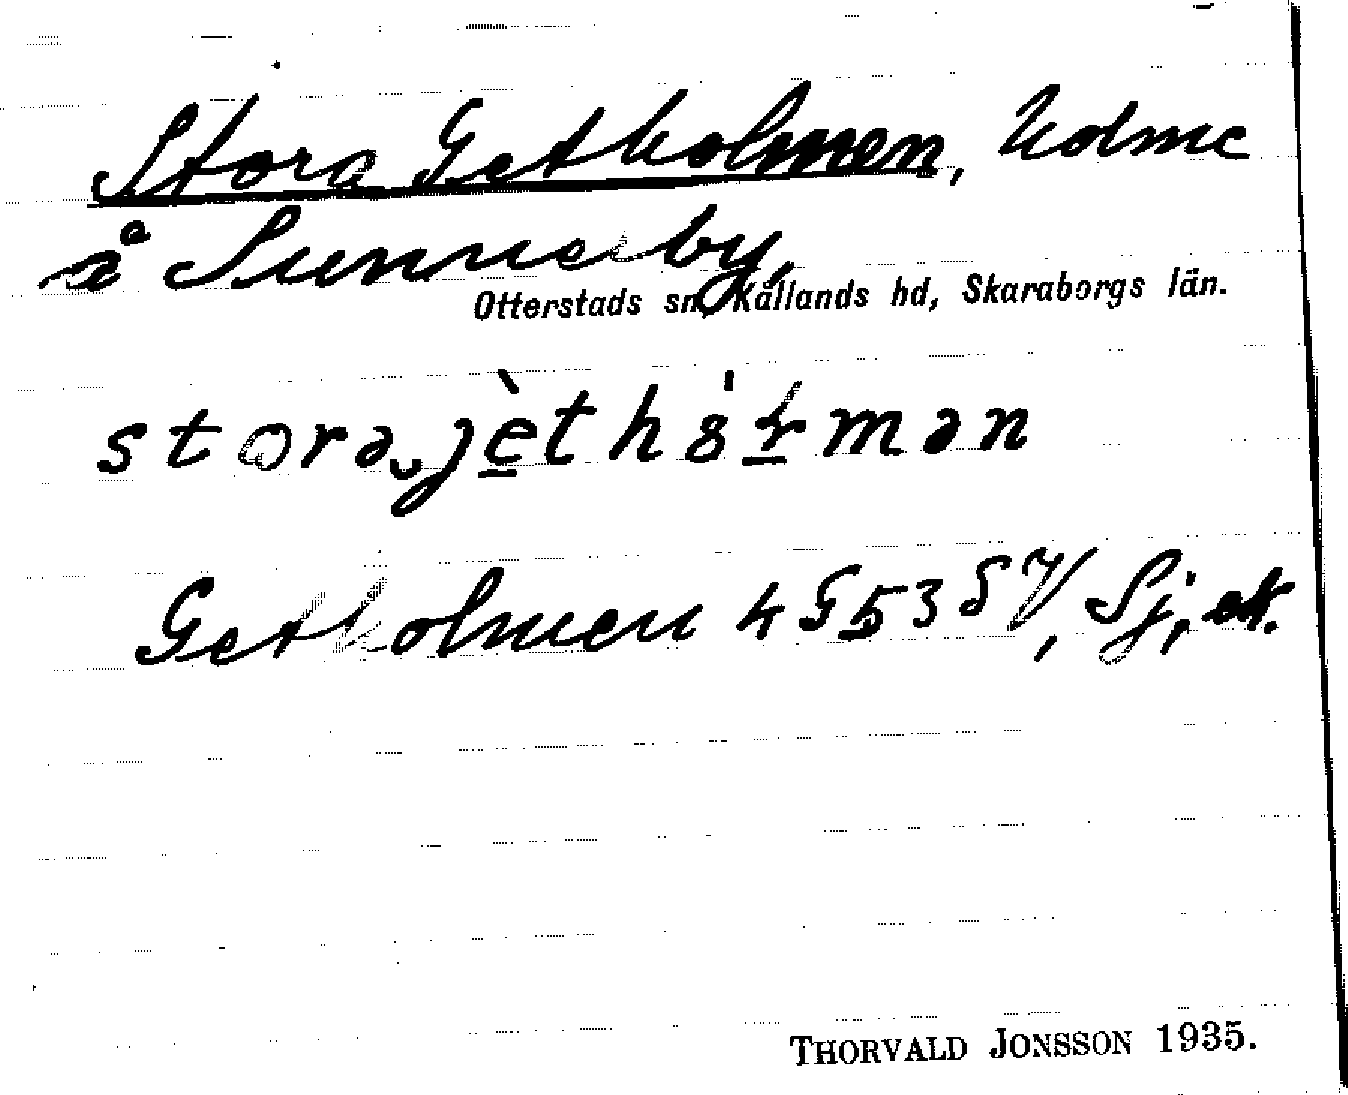 Stora Getholmen, holme
å Sunnerby,
Otterstads sn, Kållands hd, Skaraborgs län.
Getholmen 4 G 53 SV, Sj, ek.
THORVALD JONSSON 1935.